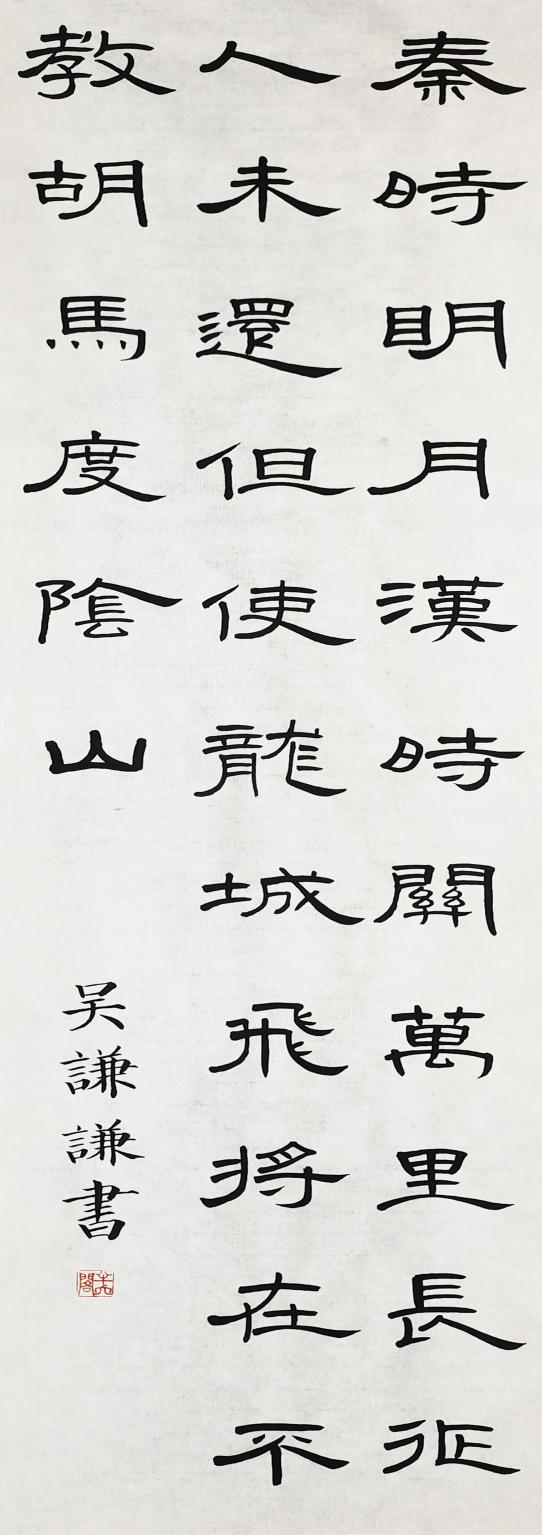 秦時明月漢時關萬里長征
人未還但使龍城飛将在不
教胡馬度陰山
吴謙謙書